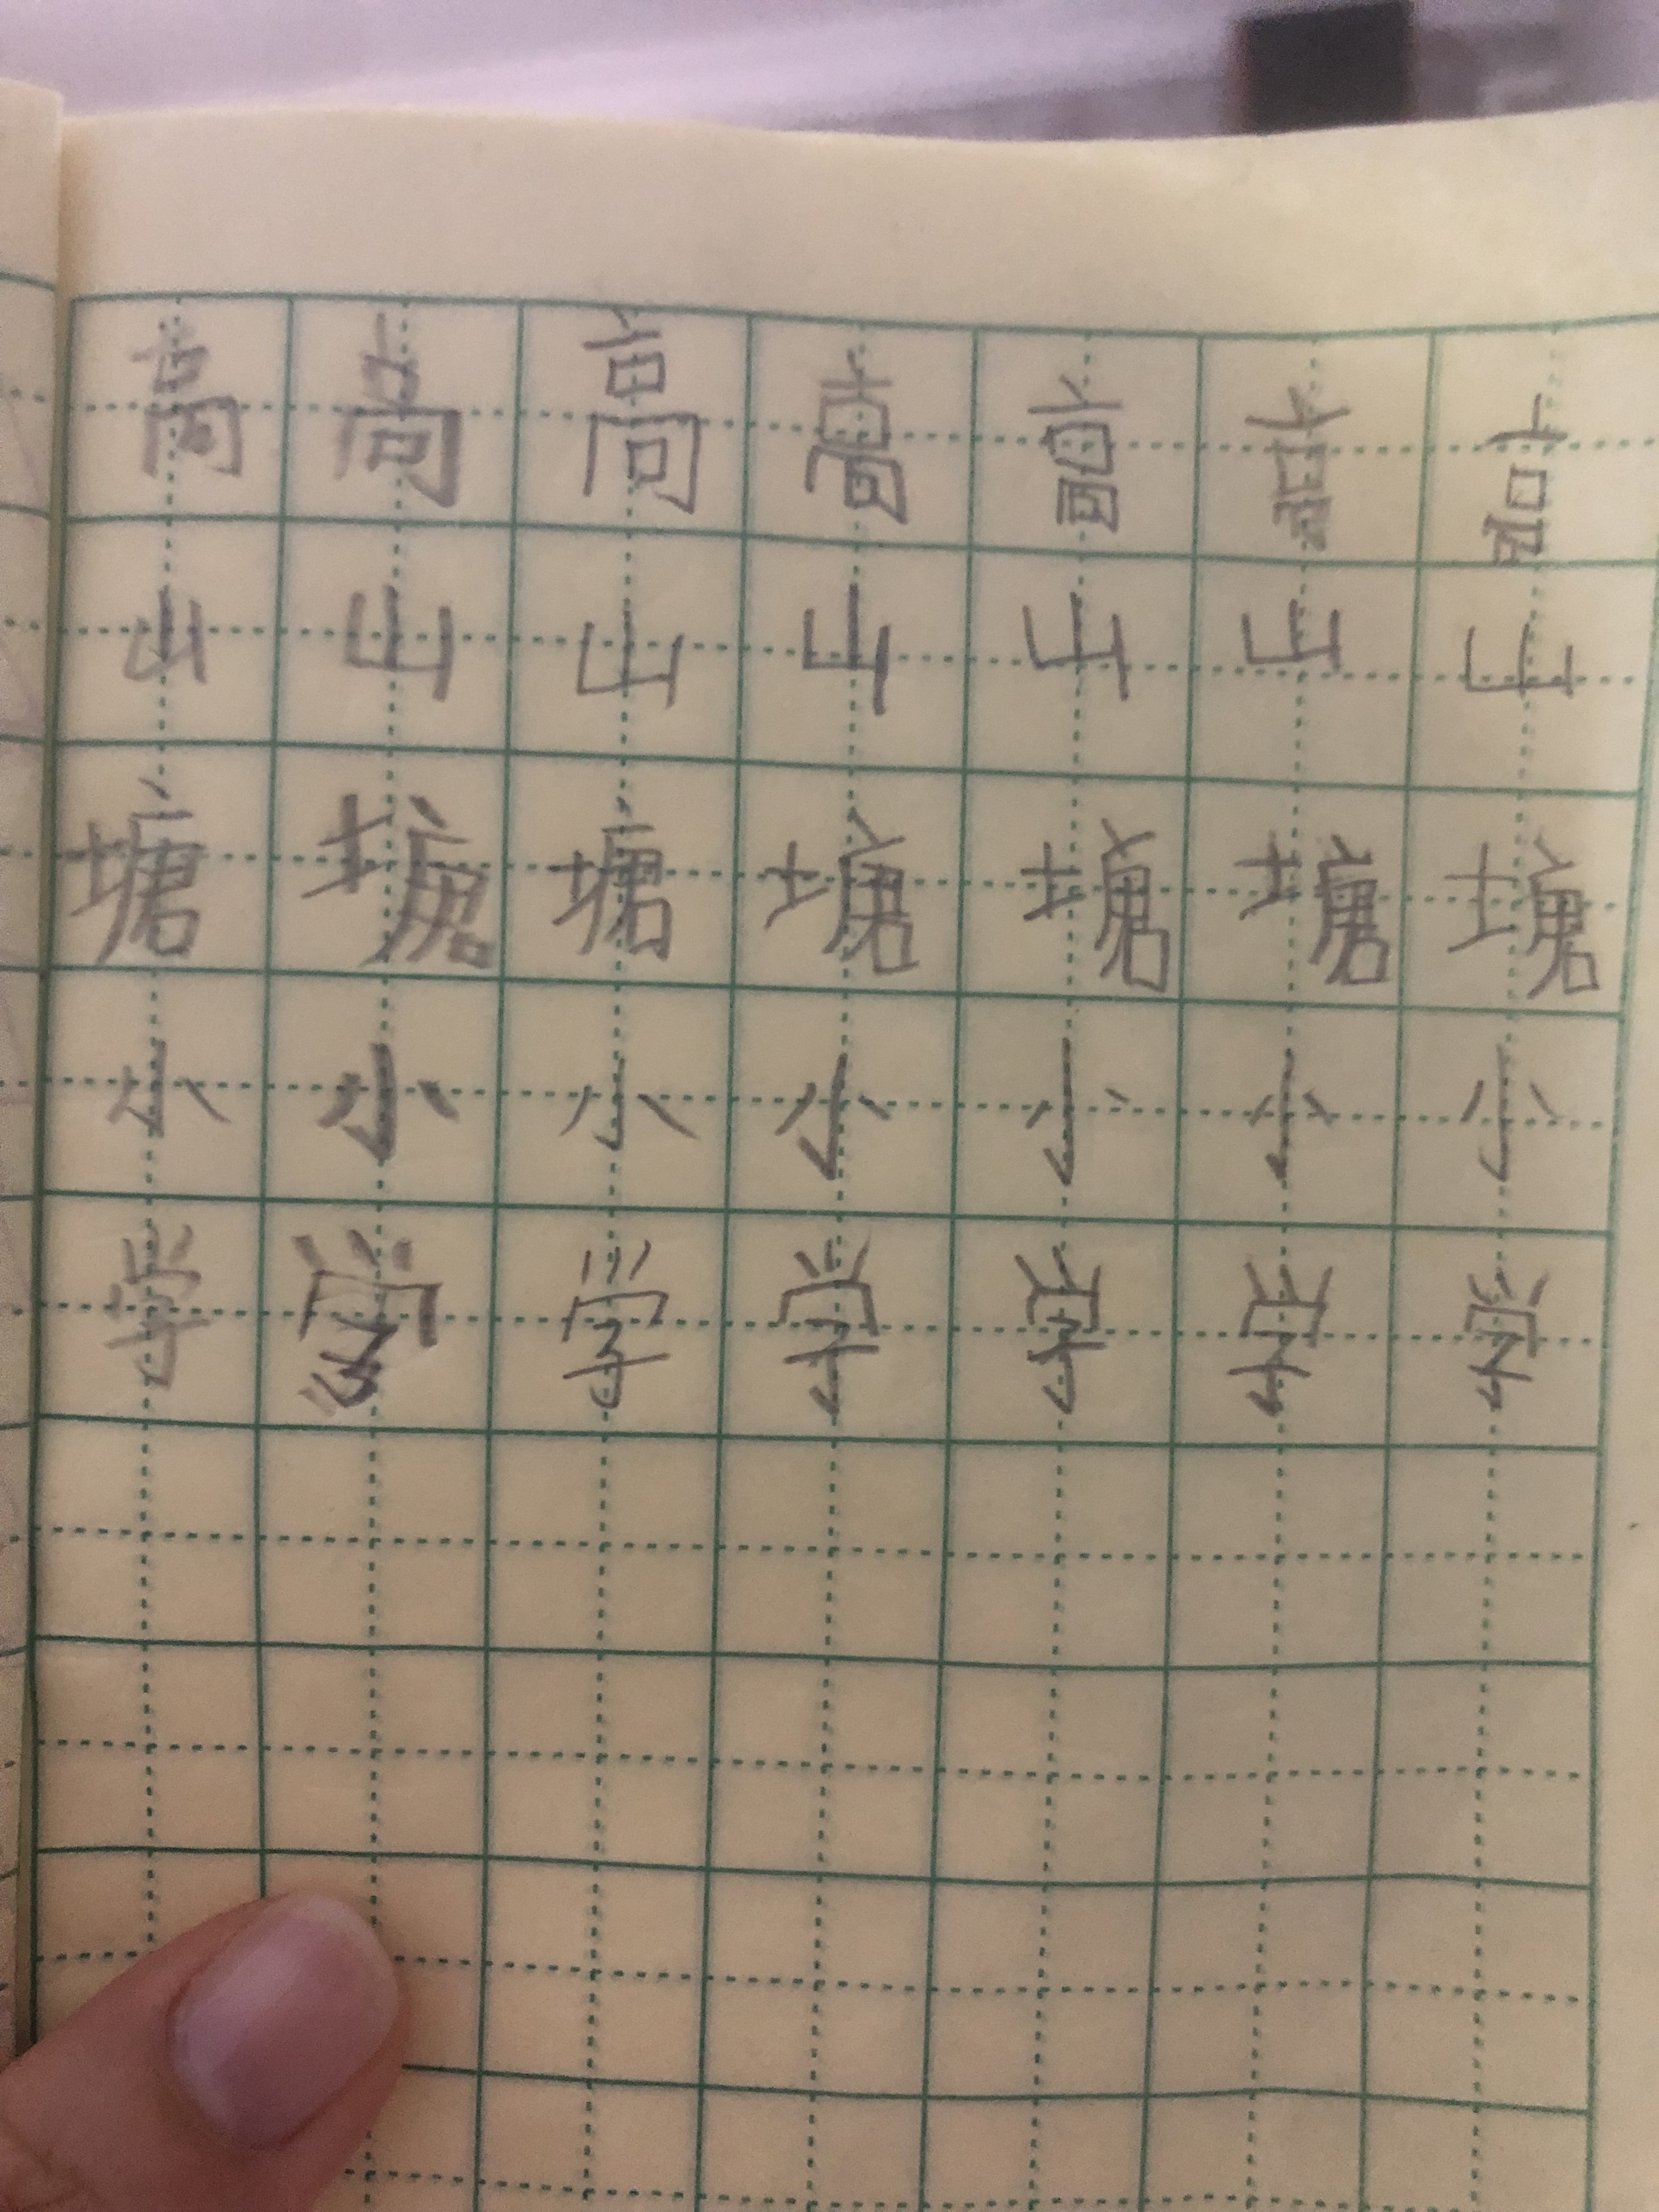 高高高高高高高
山山山山山山山
塘塘塘塘塘塘塘
小小小小小小小
学学学学学学学